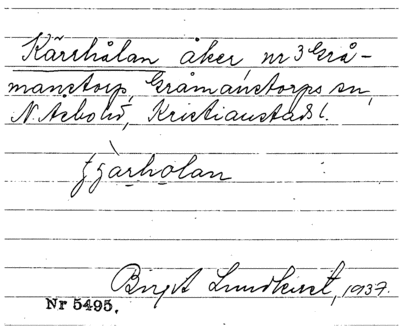 Kärrhålan åker, nr 3 Grå-
manstorp, Gråmanstorps sn,
N. Asbo hd, Kristianstads l.
Birgit Lundkvist, 1937.
Nr 5495.